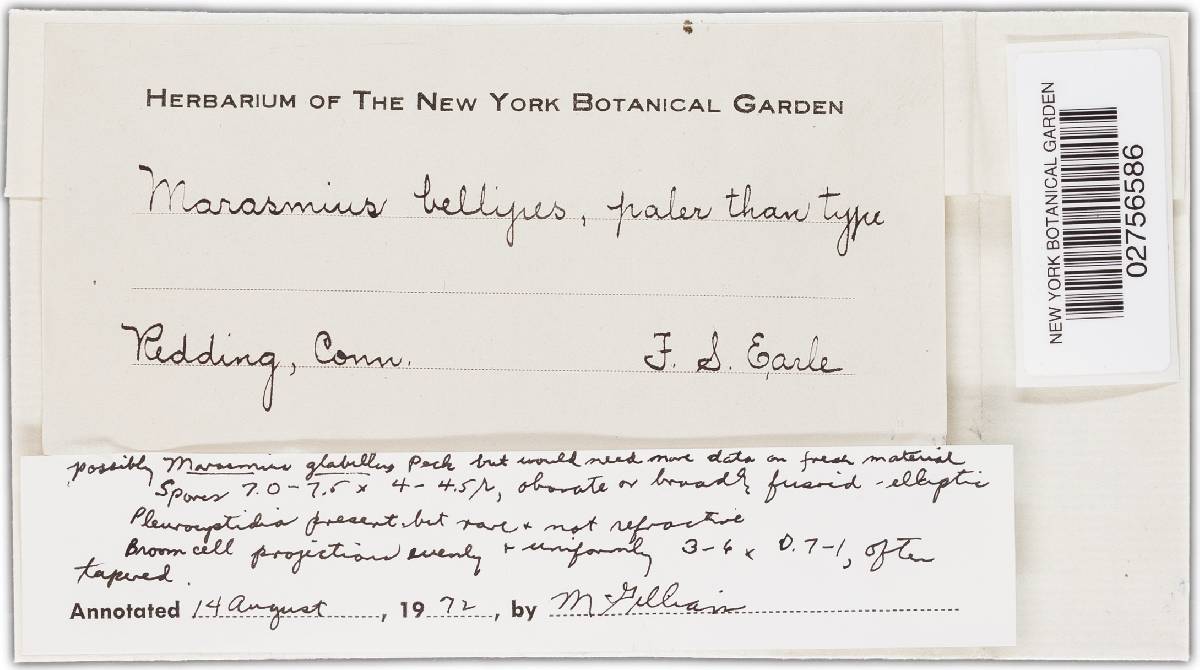 HERBARIUM OF THE NEW YORK BOTANICAL GARDEN
Marasmius bellipes, paler than type
Redding, Conn. F. S. Earle
possibly Marasmius glabellus Peck but would need more data on fresh material
Spores 7.0-7.5 x 4-4.5μ, obovate or broadly fusoid-elliptic
Pleurocystidia present but rare + not refractive
Broom cell projections evenly + uniformly 3-6 x 0.7-1, often
tapered.
Annotated 14 August, 1972, by M Gilliam
NEW YORK BOTANICAL GARDEN
02756586